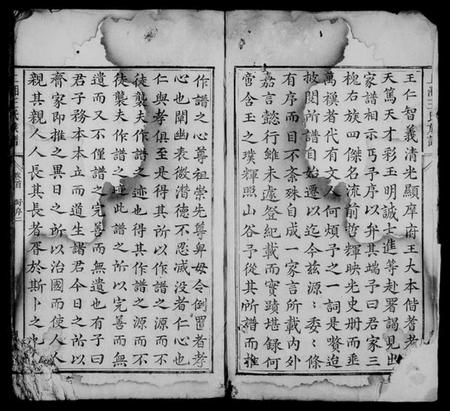 王仁智義清光顯庠府王大本偕耆老
天篤才彩玉明誠士進等赴署謁見出
家譜相示丐予序以弁其端予曰君家三
槐右族四傑名流前哲輝映光史册而垂
萬模者代有文人何煩予之一詞是贅迨
披閱所譜自始遷以迄今兹源源委委條
有序而目不紊殊自成一家言所載内外
嘉言懿行雖未遽登紀載而實蹟堪録何
啻含玉之璞輝照山谷予從其所譜而推
作譜之心尊祖崇先尊卑毋令倒置者孝
心也闡幽表微潜德不忍滅没者仁心也
仁與孝俱至是得其所以作譜之源而不
徒襲夫作譜之迹也得其作譜之源而不
徒襲夫作譜之迹此譜之所以完善而無
遺而又不僅譜之完善而無遺也有子曰
君子務本本立而道生諸君今日之所以
齊家即推之異日之所以治國而使人人
親其親人人長其長者胥於斯卜之也